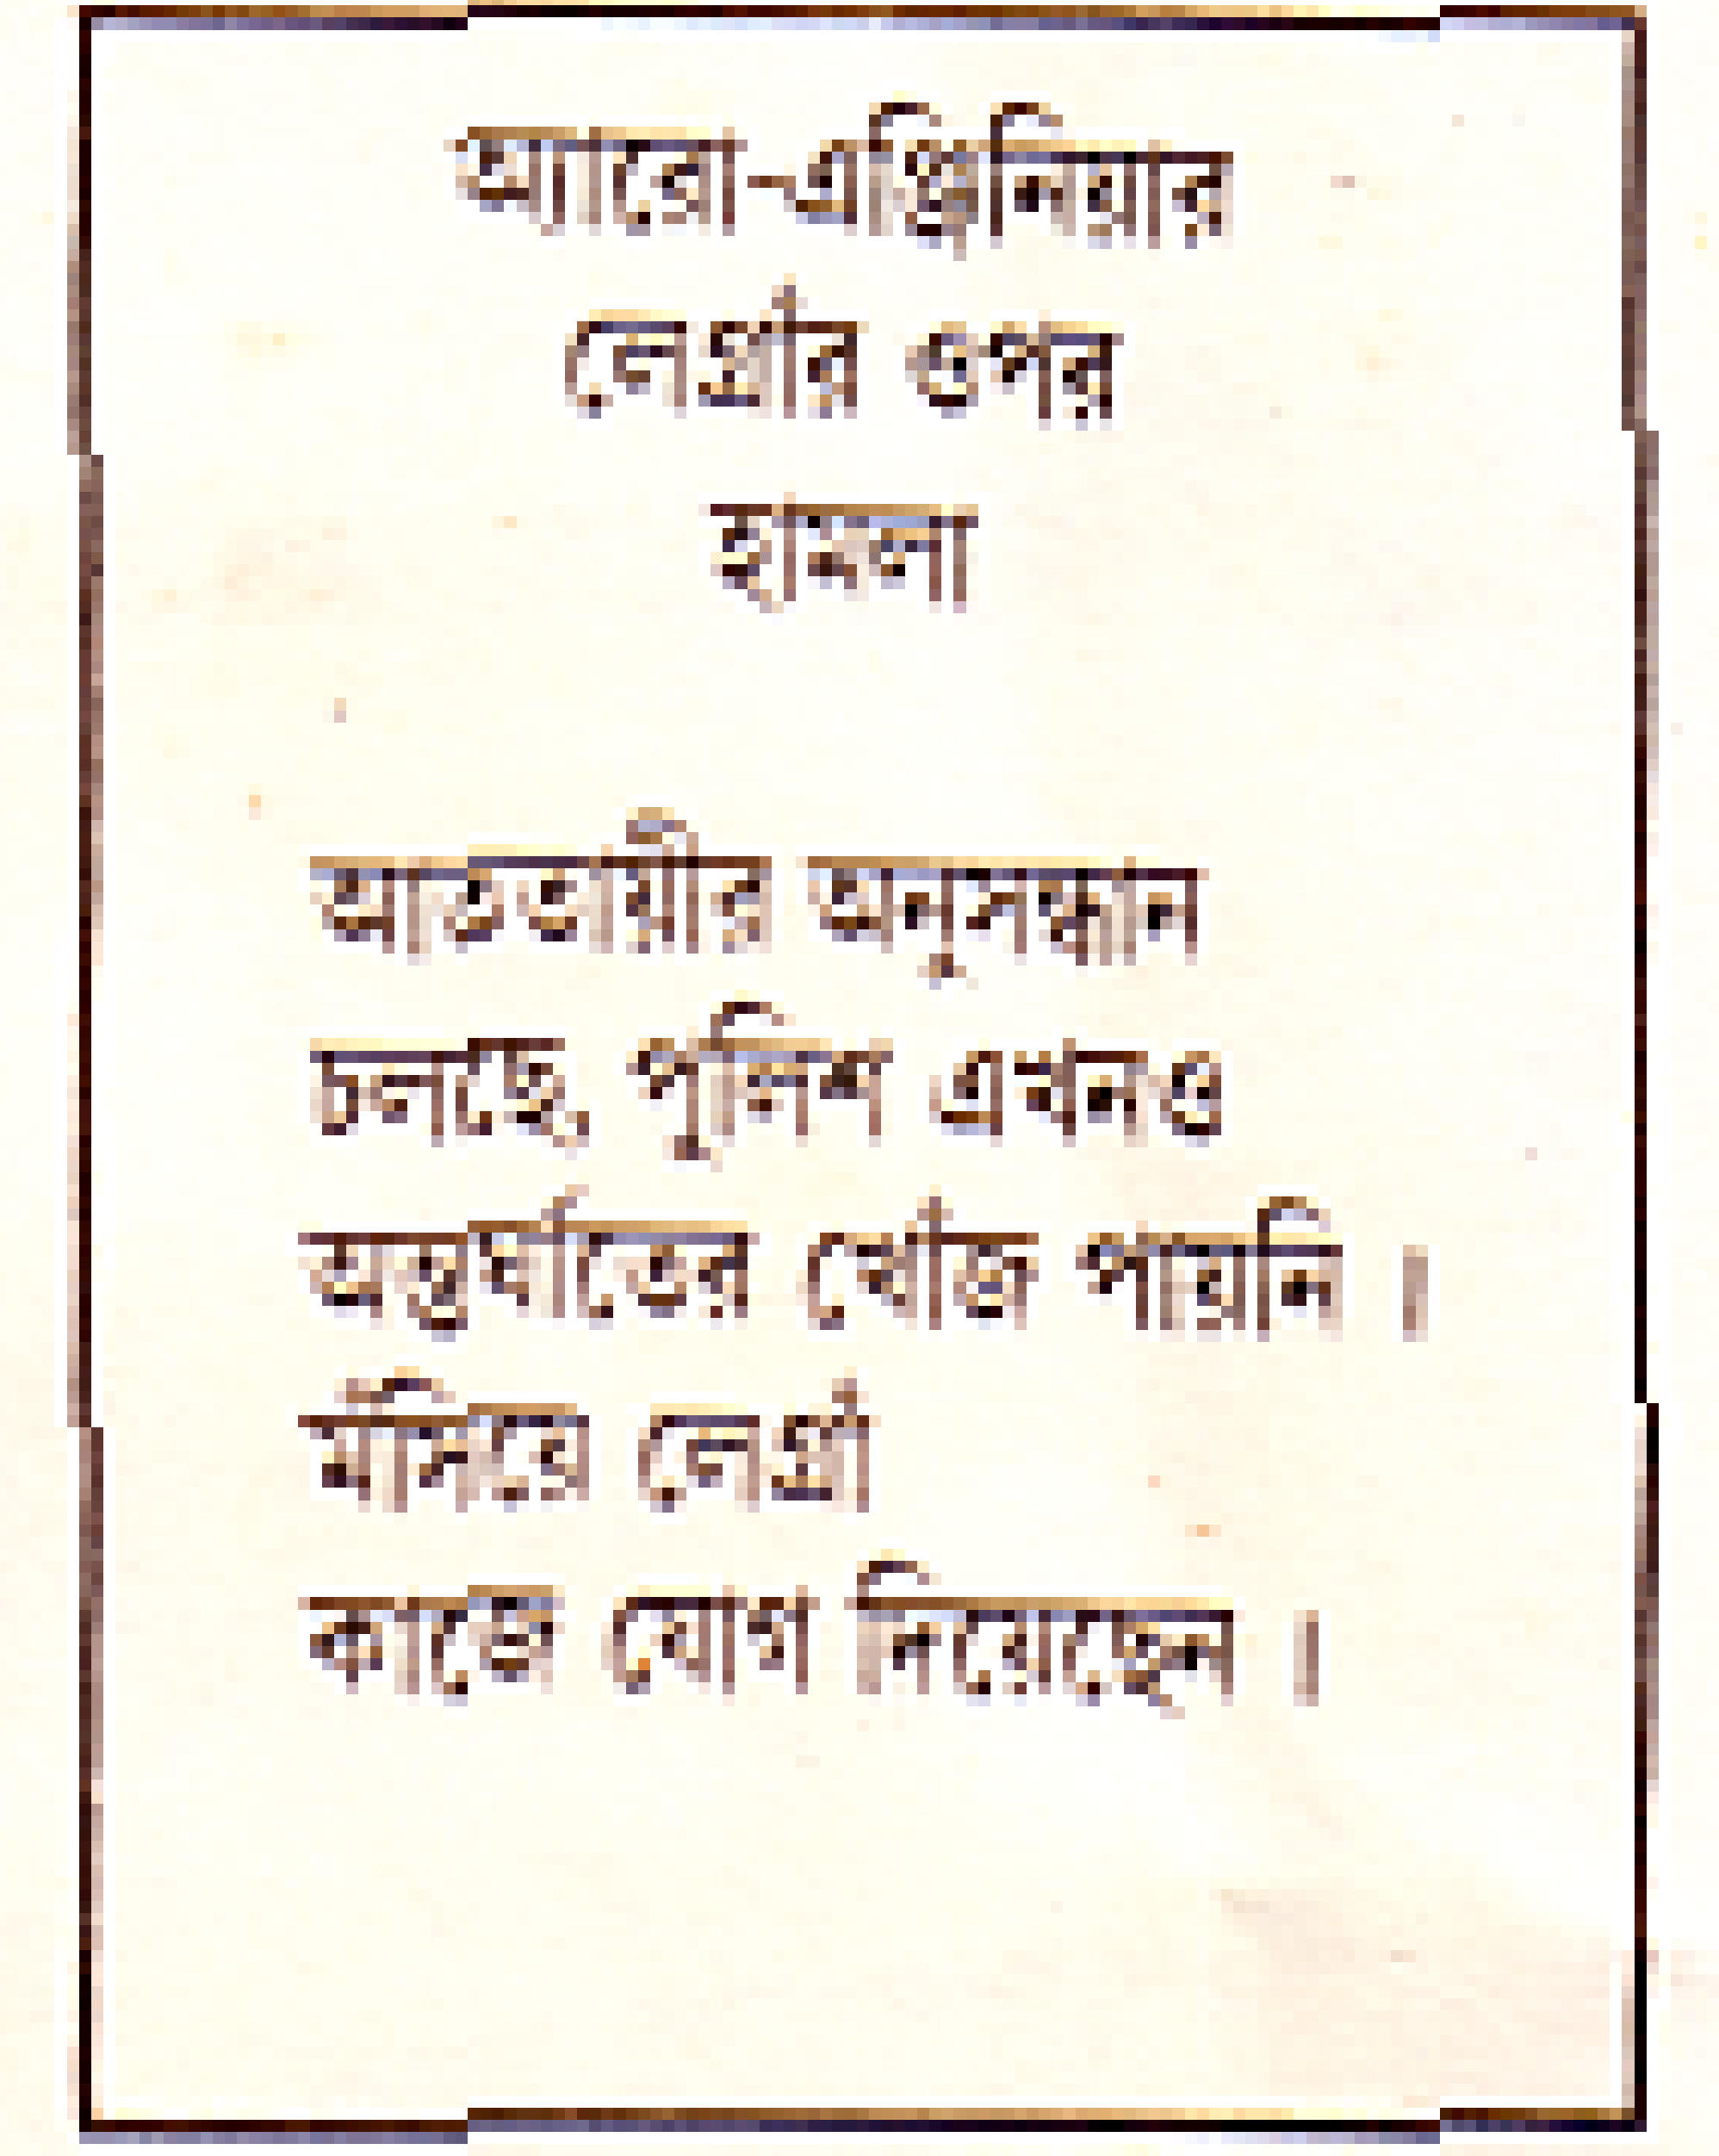 আরো-এঞ্জিনিয়ার
নেপ্রাঁর ওপর
হামলা
আততায়ীর অনুসন্ধান
চলছে, পুলিশ এখনও
অন্তর্ঘাতের খোঁজ পায়নি ।
মঁসিয়ে নেপ্রাঁ
কাজে যোগ দিয়েছেন ।